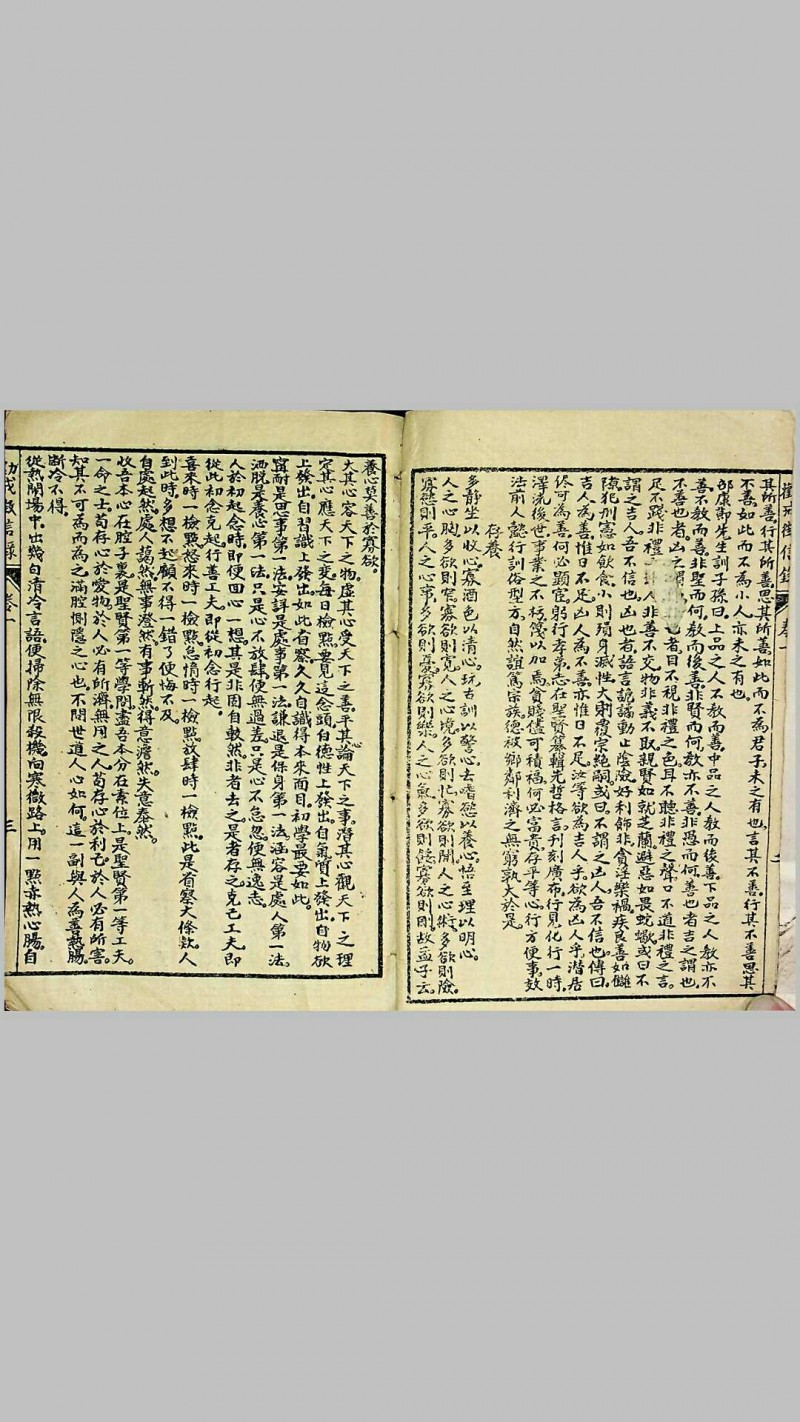 勸戒徵信錄 卷一
其所善行其所善思其所善如此而不為君子未之有也言其不善行其不善思其
不善如此而不為小人亦未之有也
邵康節先生訓子孫曰上品之人不教而善中品之人教而後善下品之人教亦不
善不教而善非聖而何教而後善非賢而何教亦不善非愚而何善也者吉之謂也
不善也者凶之謂 也者目不視非禮之色耳不聽非禮之聲口不道非禮之言
足不踐非禮 人非善不交物非義不取親賢如就芝蘭避惡如畏蛇蠍或曰不
謂之吉人吾不信也凶也者語言詭譎動止陰險好利飾非貪淫樂禍疾良善如讎
隙犯刑憲如飲食小則殞身滅性大則覆宗絕嗣或曰不謂之凶人吾不信也傳曰
吉人為善惟日不足凶人為不善亦惟日不足汝等欲為吉人乎欲為凶人乎潛居
終可為善何必顯宦躬行孝弟志在聖賢纂輯先哲格言刊刻廣布行見化行一時
澤流後世事業之不朽蔑以加焉貧賤儘可積福何必富貴存平等心行方便事效
法前人懿行訓俗型方自然誼篤宗族德被鄉鄰利濟之無窮孰大於是
存養
多靜坐以收心寡酒色以清心玩古訓以警心去嗜慾以養心悟至理以明心
人之心胸多欲則窄寡欲則寬人之心境多欲則忙寡欲則閒人之心術多欲則險
寡慾則平人之心事多欲則憂寡欲則樂人之心氣多欲則餒寡欲則剛故孟子云
養心莫善於寡欲
大其心容天下之物虛其心受天下之善平其心論天下之事潛其心觀天下之理
定其心應天下之變每日檢點要見這念頭自德性上發出自氣質上發出自物欲
上發出自習識上發出如此省察久久自識得本來面目初學最要如此
寧耐是思事第一法安詳是處事第一法謙退是保身第一法涵容是處人第一法
洒脫是養心第一法只是心不放肆便無過差只是心不怠忽便無逸志
人於初起念時即便回心一想其是非固自較然非者去之是者存之克己工夫即
從此初念克起行善工夫即從初念行起
喜來時一檢點怒來時一檢點怠惰時一檢點放肆時一檢點此是省察大條款人
到此時多想不起顧不得一錯了便悔不及
自處超然處人藹然無事澄然有事斬然得意澹然失意泰然
收吾本心在腔子裏是聖賢第一等學問盡吾本分在素位上是聖賢第一等工夫
一命之士苟存心於愛物於人必有所濟無用之人苟存心於利己於人必有所害
知其不可為而為之滿腔惻隱之心也不問世道人心如何這一副與人為善熱腸
斷冷不得
從熱鬧場中出幾句清冷言語便掃除無限殺機向寒微路上用一點赤熱心腸自
勸戒徵信錄 卷一 三